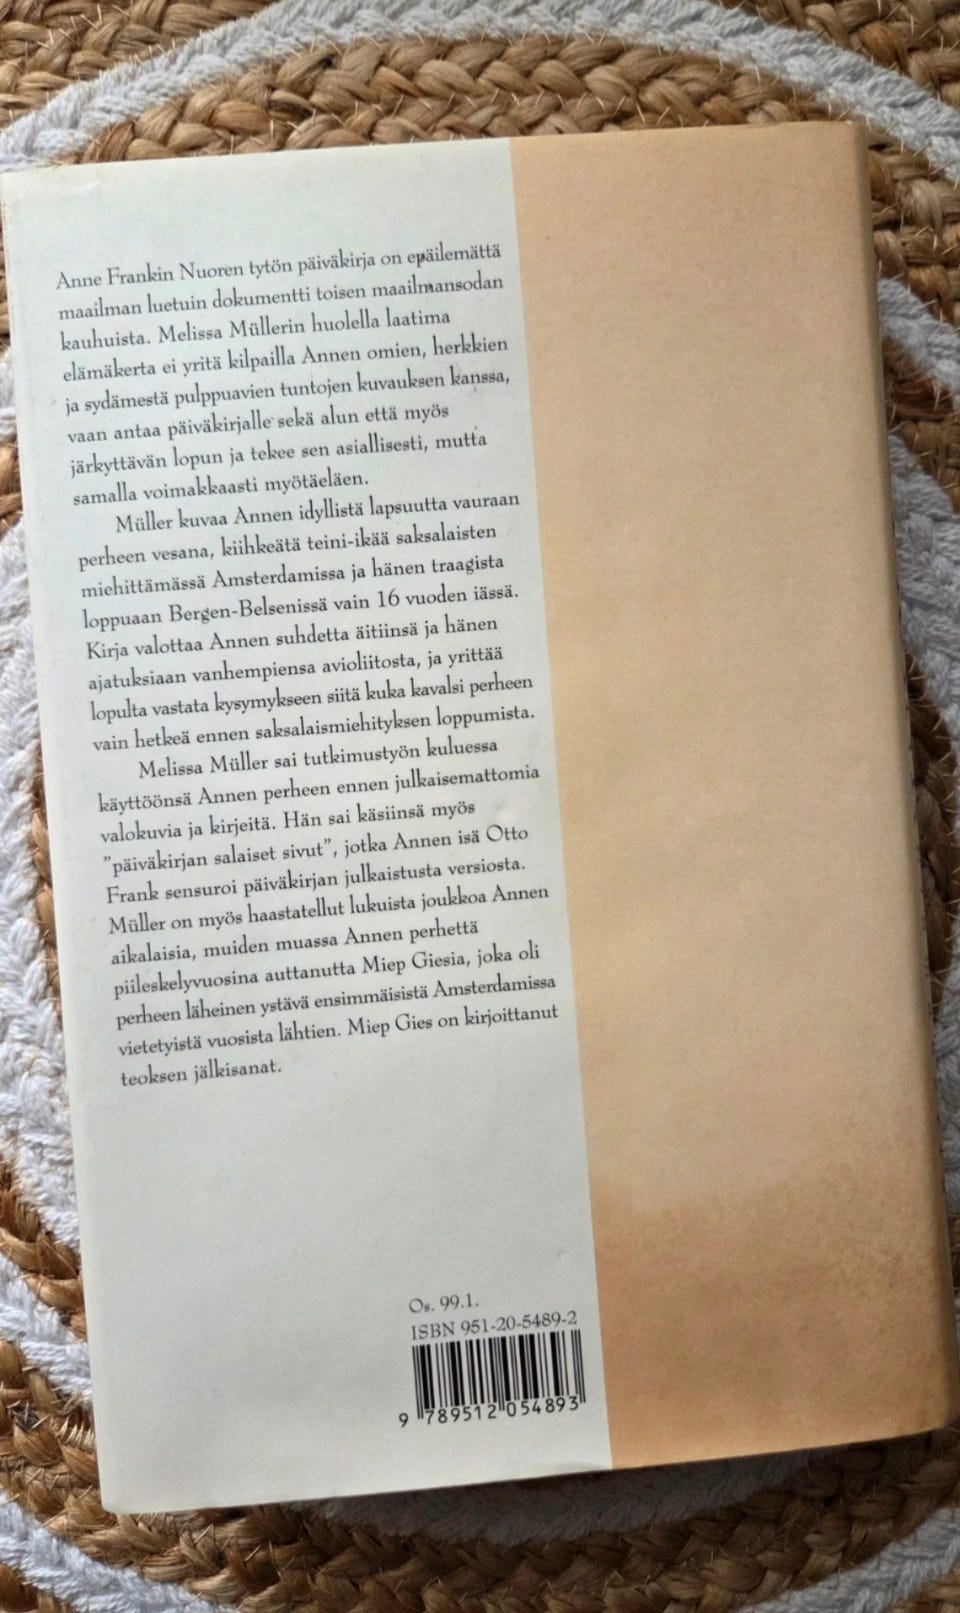 Anne Frankin Nuoren tytön päiväkirja on epäilemättä
maailman luetuin dokumentti toisen maailmansodan
kauhuista. Melissa Müllerin huolella laatima
elämäkerta ei yritä kilpailla Annen omien, herkkien
ja sydämestä pulppuavien tuntojen kuvauksen kanssa,
vaan antaa päiväkirjalle sekä alun että myös
järkyttävän lopun ja tekee sen asiallisesti, mutta
samalla voimakkaasti myötäeläen.
Müller kuvaa Annen idyllistä lapsuutta vauraan
perheen vesana, kiihkeätä teini-ikää saksalaisten
miehittämässä Amsterdamissa ja hänen traagista
loppuaan Bergen-Belsenissä vain 16 vuoden iässä.
Kirja valottaa Annen suhdetta äitiinsä ja hänen
ajatuksiaan vanhempiensa avioliitosta, ja yrittää
lopulta vastata kysymykseen siitä kuka kavalsi perheen
vain hetkeä ennen saksalaismiehityksen loppumista.
Melissa Müller sai tutkimustyön kuluessa
käyttöönsä Annen perheen ennen julkaisemattomia
valokuvia ja kirjeitä. Hän sai käsiinsä myös
"päiväkirjan salaiset sivut", jotka Annen isä Otto
Frank sensuroi päiväkirjan julkaistusta versiosta.
Müller on myös haastatellut lukuista joukkoa Annen
aikalaisia, muiden muassa Annen perhettä
piileskelyvuosina auttanutta Miep Giesia, joka oli
perheen läheinen ystävä ensimmäisistä Amsterdamissa
vietetyistä vuosista lähtien. Miep Gies on kirjoittanut
teoksen jälkisanat.
Os. 99.1.
ISBN 951-20-5489-2
9 789512 054893